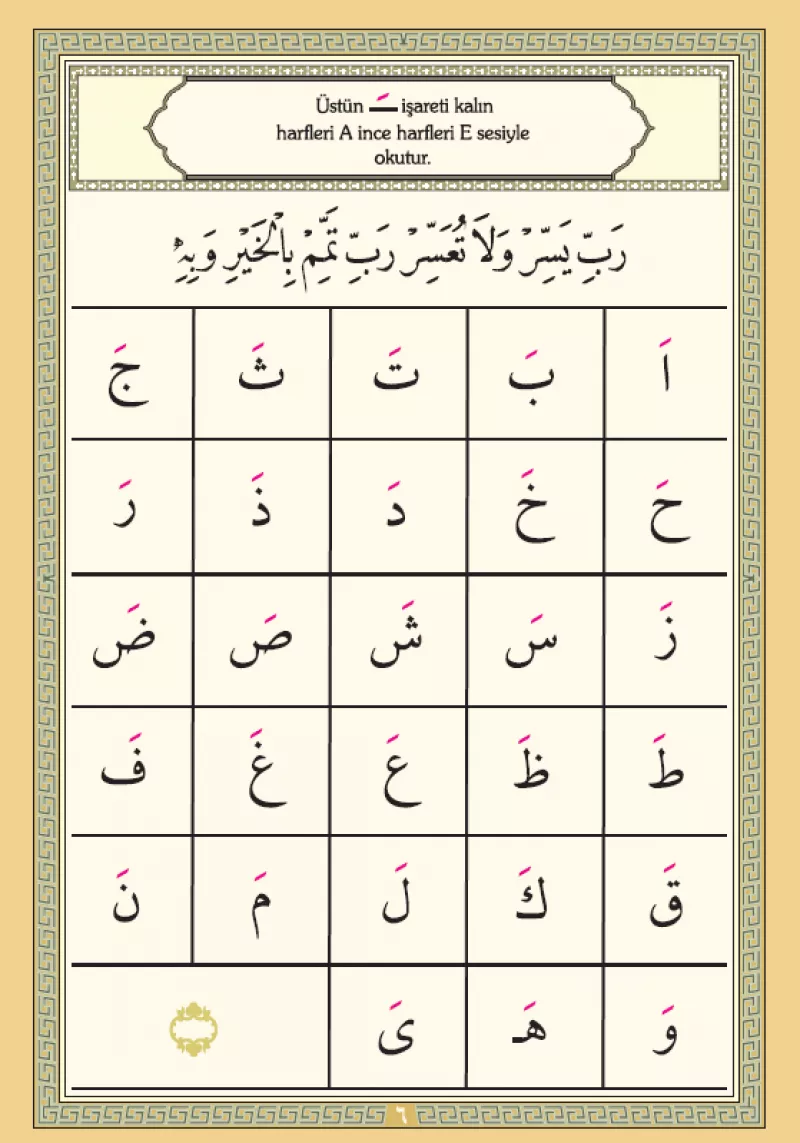 Üstün ـَـ işareti kalın
harfleri A ince harfleri E sesiyle
okutur.
رَبِّ يَسِّرْ وَلَا تُعَسِّرْ رَبِّ تَمِّمْ بِالْخَيْرِ وَبِهِ
اَ بَ تَ ثَ جَ
حَ خَ دَ ذَ رَ
زَ سَ شَ صَ ضَ
طَ ظَ عَ غَ فَ
قَ كَ لَ مَ نَ
وَ هَـ ىَ
٦